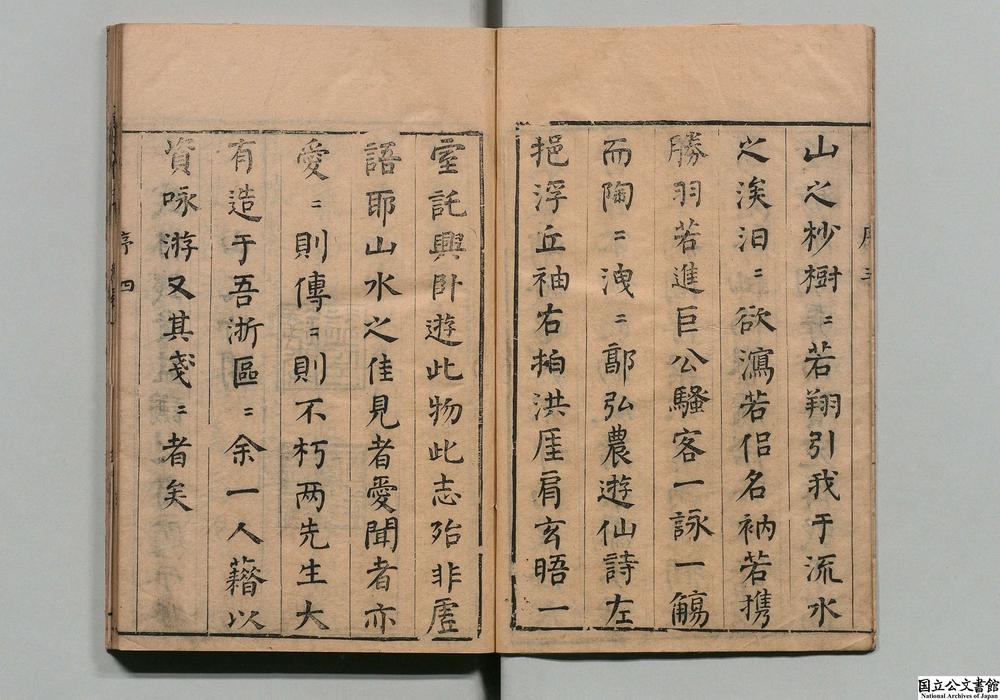 山之杪樹〻若翔引我于流水
之涘汩〻欲瀉若侣名衲若攜
勝羽若進巨公騷客一詠一觴
而陶〻洩〻郭弘農遊仙詩左
挹浮丘袖右拍洪厓肩玄晤一
室託興卧遊此物此志殆非虚
語耶山水之佳見者愛聞者亦
愛〻則傳〻則不朽两先生大
有造于吾浙區〻余一人藉以
資咏游又其戔〻者矣
序四
国立公文書館
National Archives of Japan